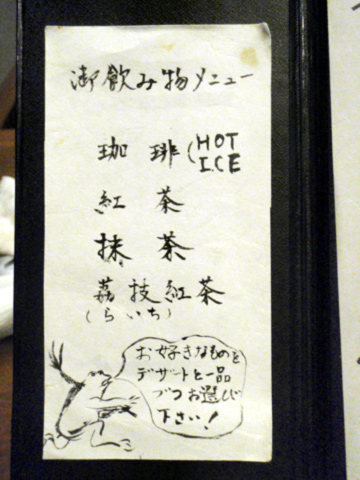 御飲み物メニュー
珈琲(HOT
ICE
紅茶
抹茶
荔技紅茶
(らいち)
お好きなものを
デザートと一品
づつお選び
下さい!